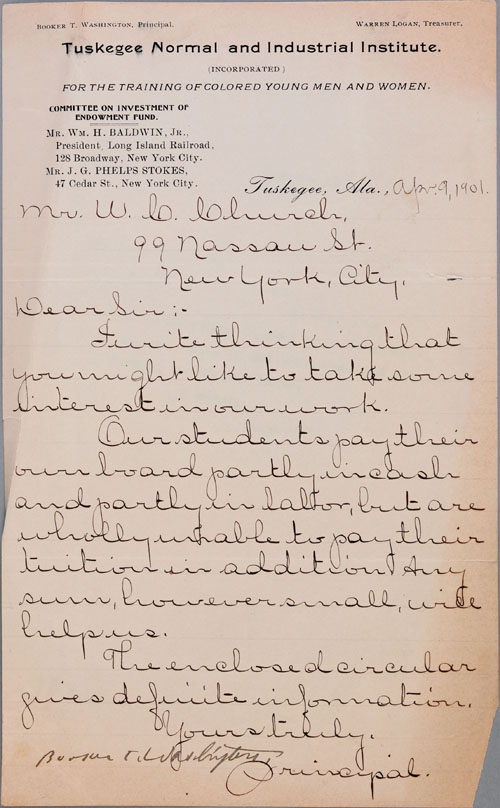 BOOKER T. WASHINGTON, Principal. WARREN LOGAN, Treasurer,
Tuskegee Normal and Industrial Institute.
(INCORPORATED)
FOR THE TRAINING OF COLORED YOUNG MEN AND WOMEN.
COMMITTEE ON INVESTMENT OF
ENDOWMENT FUND.
MR. WM. H. BALDWIN, JR.,
President Long Island Railroad,
128 Broadway, New York City.
MR. J. G. PHELPS STOKES,
47 Cedar St., New York City.
Tuskegee, Ala., Apr. 9, 1901.
Mr. W. C. Church,
99 Nassau St.
New York, City.
Dear Sir:-
I write thinking that
you might like to take some
interest in our work.
Our students pay their
own board partly in cash
and partly in labor, but are
wholly unable to pay their
tuition in addition. Any
sum, however small, will
help us.
The enclosed circular
gives definite information.
Yours truly,
Booker T. Washington,
Principal.